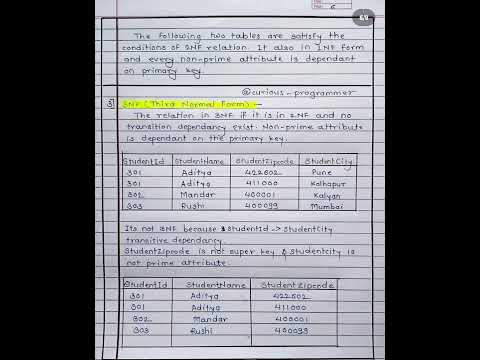 6/9
The following two tables are satisfy the
conditions of 2NF relation. It also in 1NF form
and every non-prime attribute is dependant
on primary key.
@curious_programmer
3) 3NF (Third Normal Form) :-
The relation in 3NF if it is in 2NF and no
transition dependancy exist. Non-prime attribute
is dependant on the primary key.
StudentId StudentName StudentZipcode StudentCity
301 Aditya 422602 Pune
301 Aditya 411000 Kolhapur
302 Mandar 400001 Kalyan
303 Rushi 400099 Mumbai
Its not 3NF because StudentId -> StudentCity
transitive dependancy.
StudentZipcode is not super key & Studentcity is
not prime attribute.
StudentId StudentName StudentZipcode
301 Aditya 422602
301 Aditya 411000
302 Mandar 400001
303 Rushi 400099